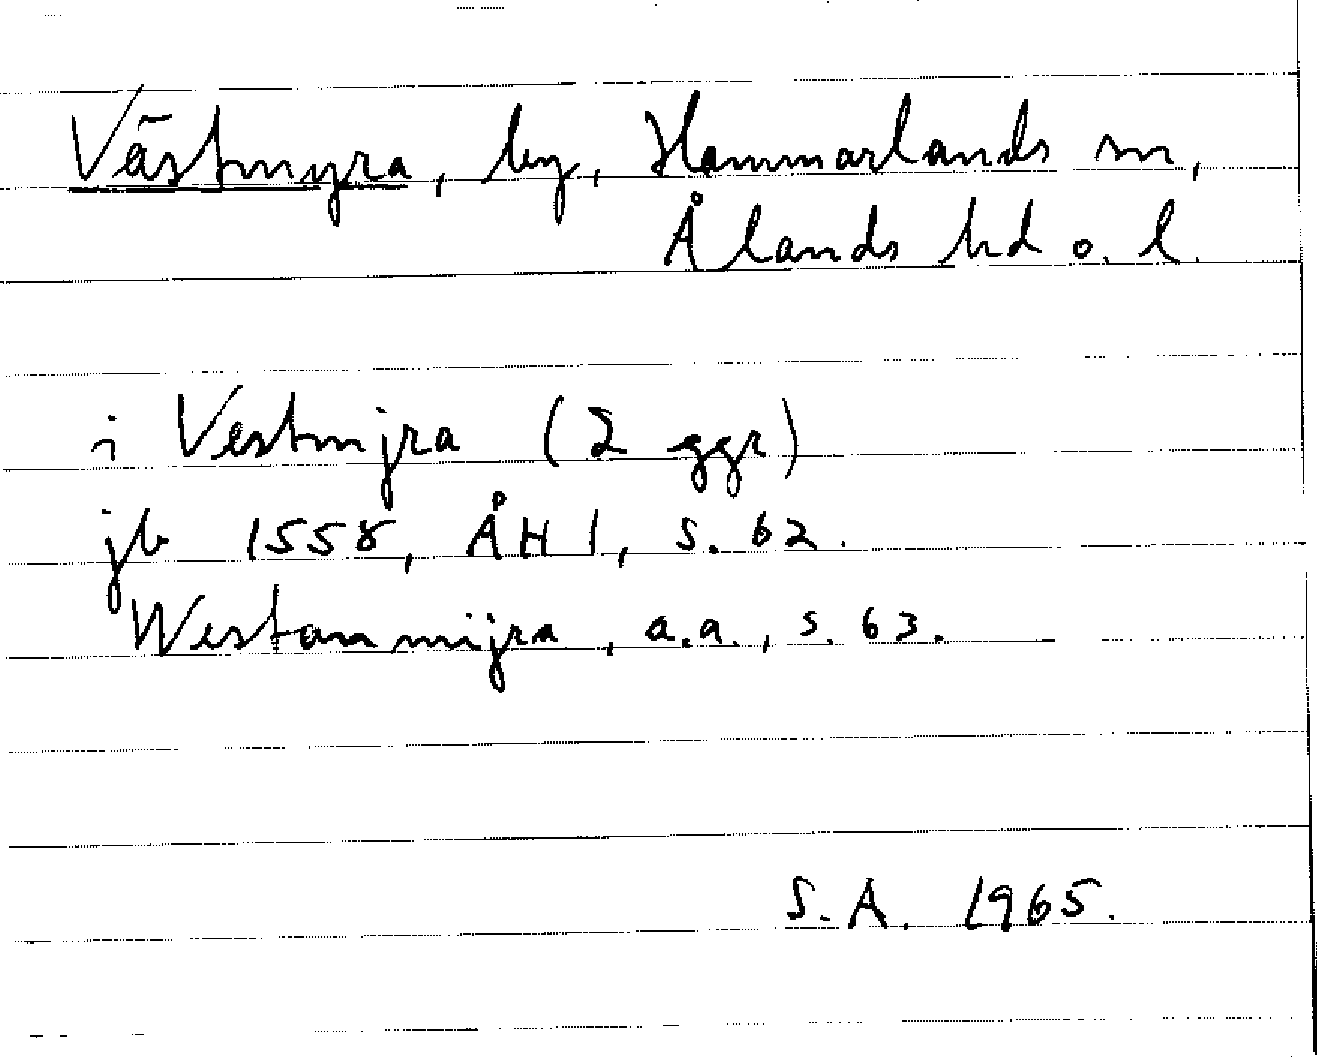 Västmyra, by, Hammarlands sn,
Ålands hd o. l.
i Vestmijra (2 ggr)
jb 1558, ÅH 1, s. 62.
Westanmijra, a.a., s. 63.
S.A. 1965.